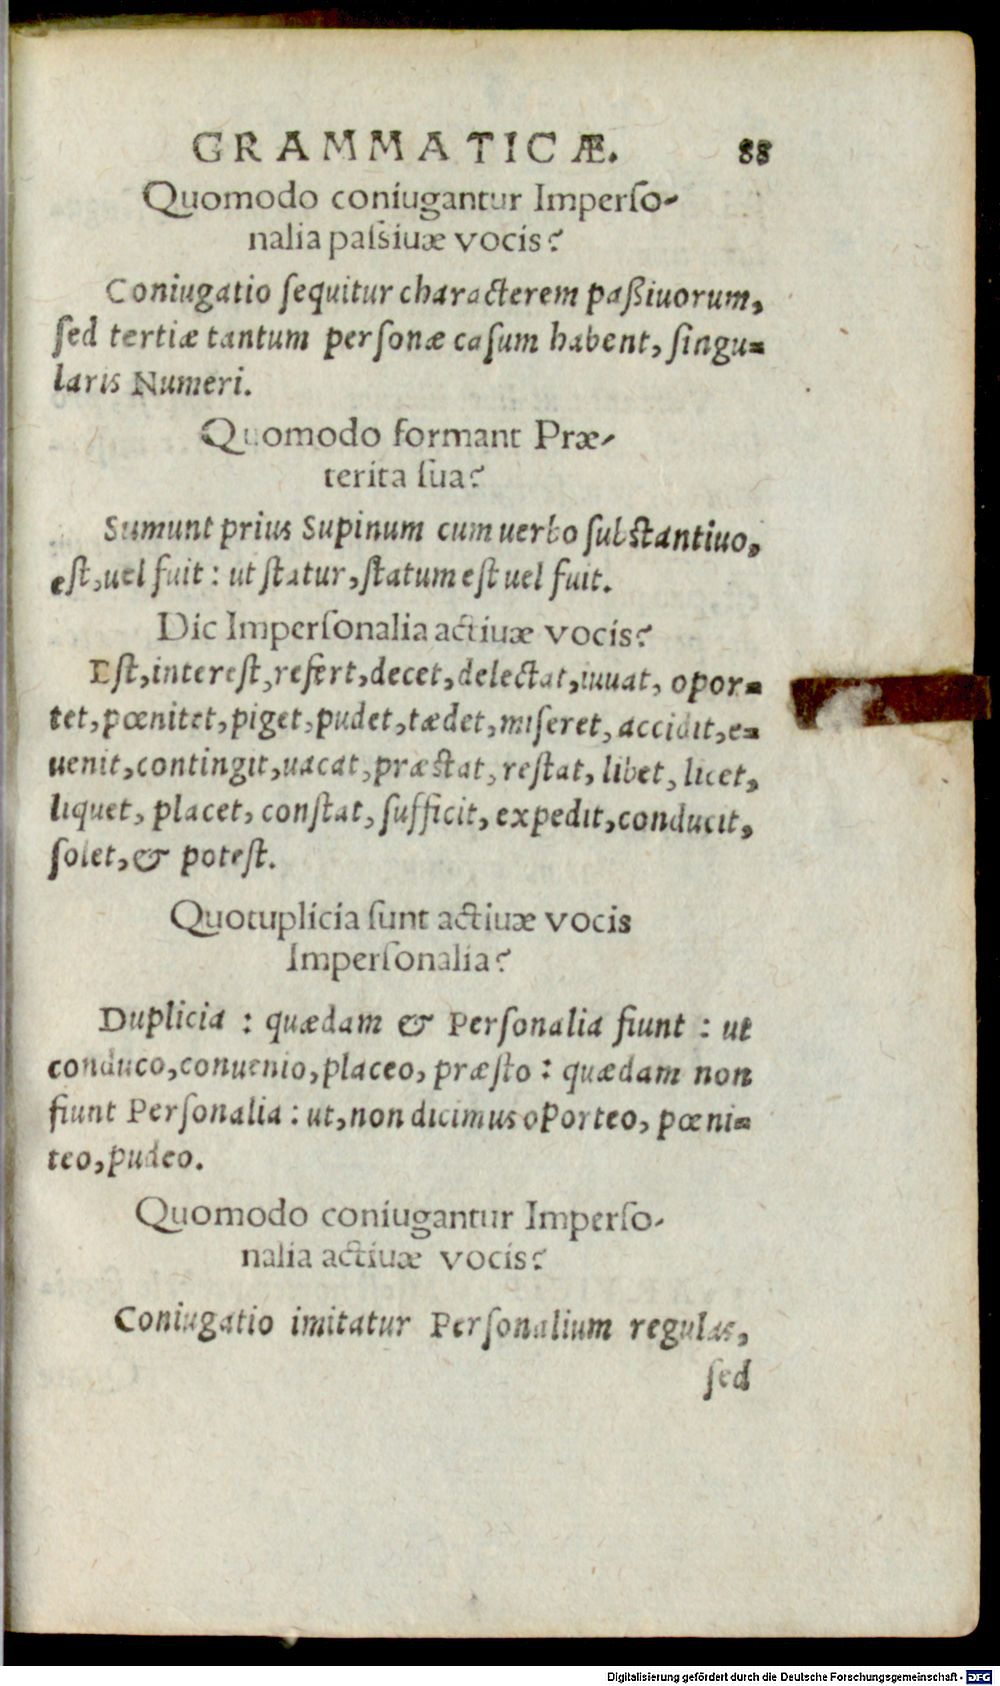 GRAMMATICÆ. 88
Quomodo coniugantur Imperſo-
nalia paſsiuæ vocis?
Coniugatio ſequitur characterem paßiuorum,
ſed tertiæ tantum perſonæ caſum habent, ſingu=
laris Numeri.
Quomodo formant Præ-
terita ſua?
Sumunt prius Supinum cum uerbo ſubſtantiuo,
eſt, uel fuit : ut ſtatur, ſtatum eſt uel fuit.
Dic Imperſonalia actiuæ vocis?
Eſt, intereſt, refert, decet, delectat, iuuat, opor=
tet, pœnitet, piget, pudet, tædet, miſeret, accidit, e=
uenit, contingit, uacat, præſtat, reſtat, libet, licet,
liquet, placet, conſtat, ſufficit, expedit, conducit,
ſolet, & poteſt.
Quotuplicia ſunt actiuæ vocis
Imperſonalia?
Duplicia : quædam & Perſonalia fiunt : ut
conduco, conuenio, placeo, præſto : quædam non
fiunt Perſonalia : ut, non dicimus oPorteo, pœni=
teo, pudeo.
Quomodo coniugantur Imperſo-
nalia actiuæ vocis?
Coniugatio imitatur Perſonalium regulas,
ſed
Digitalisierung gefördert durch die Deutsche Forschungsgemeinschaft - DFG